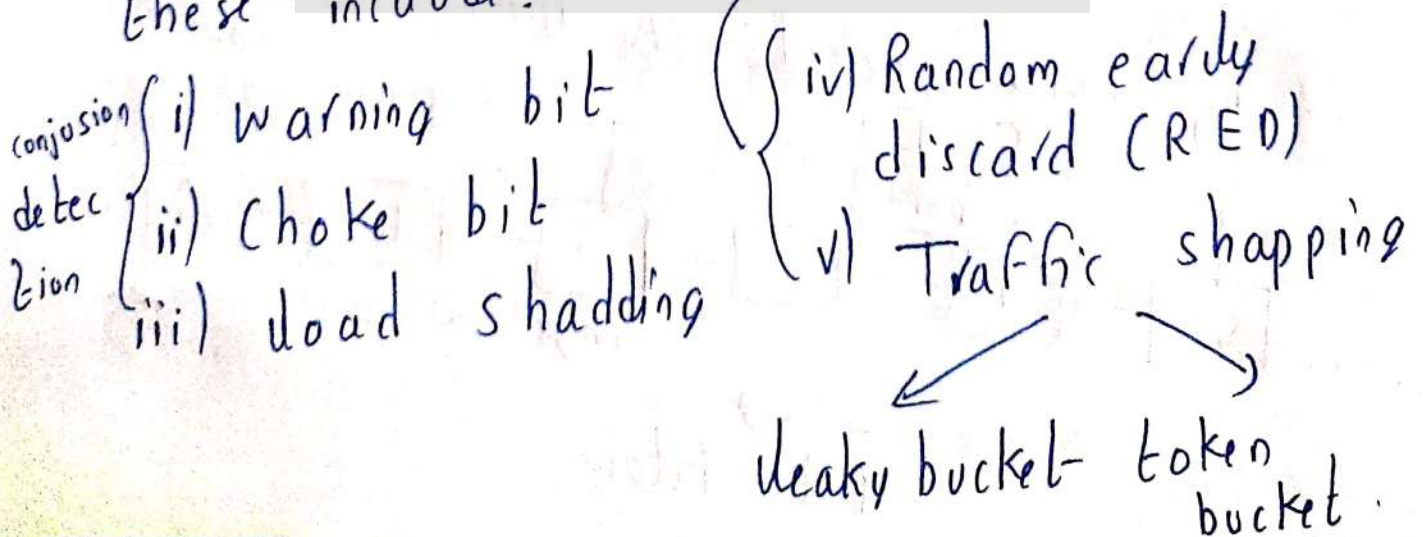 these
conjusion
detec
tion
i) warning bit
ii) Choke bit
iii) load shadding
iv) Random early
discard (RED)
v) Traffic shapping
leaky bucket token
bucket.